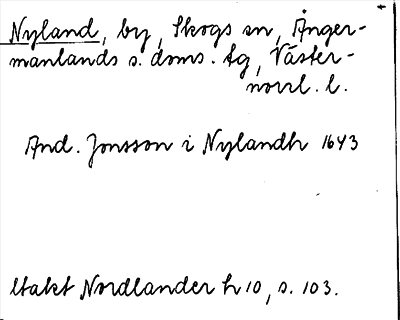 Nyland, by, Skogs sn, Ånger-
manlands s. doms. tg, Väster-
norrl. l.
And. Jonsson i Nylandh 1643
Utakt Nordlander h 10, s. 103.